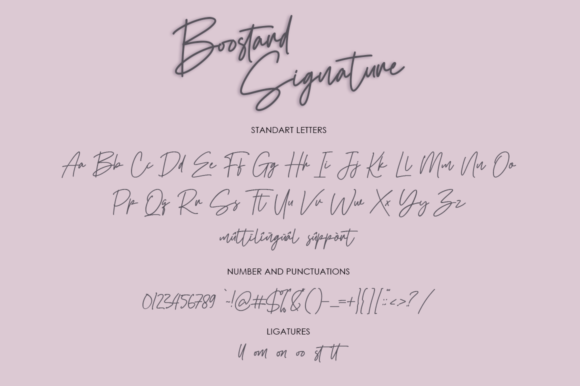 Boostard
Signature
STANDART LETTERS
Aa Bb Cc Dd Ee Ff Gg Hh Ii Jj Kk Ll Mm Nn Oo
Pp Qq Rr Ss Tt Uu Vv Ww Xx Yy Zz
multilingual support
NUMBER AND PUNCTUATIONS
0123456789 `~!@#$%&()-_=+|{}[]":;<>?/
LIGATURES
ll om on oo st tt